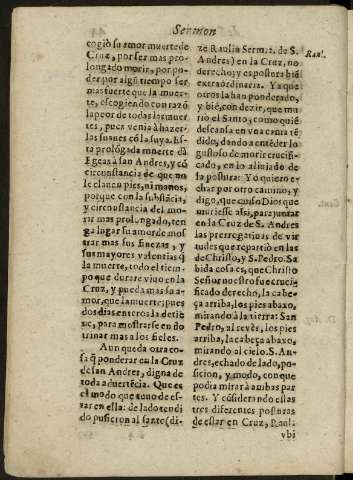 Sermon
cogiò su amor muerte de
Cruz, por ser mas pro-
longado morir, por po-
der por algũ tiempo ser
mas fuerte que la muer-
te, escogiendo con razõ
la peor de todas las muer
tes, pues venia à hazer-
las suaues cõ la suya. Es-
ta prolõgada muerte dà
Egeas à san Andres, y cõ
circunstancia de que no
le clauen pies, ni manos,
porque con la substãcia,
y circunstancia del mo-
rir mas prolongado, ten
ga lugar su amor de mos
trar mas sus finezas, y
sus mayores valentias q̃
la muerte, todo el tiem-
po que durare viuo en la
Cruz, y pueda mas su a-
mor, que la muerte; pues
dos dias enteros la detie
ne, para mostrarse en do
trinar mas a los fieles.
Aunque da otra co-
sa q̃ ponderar en la Cruz
de san Andres, digna de
toda aduertẽcia. Que es
el modo que tuuo de es-
tar en ella: de lado tendi
do pusieron al santo (di-
ze Raulin Serm. 2. de S.
Andres) en la Cruz, no
derecho; y es postura biẽ
extraordinaria. Ya que
otros la han ponderado,
y biẽ, con dezir, que mu
riò el Santo, como quiẽ
descansa en vna cama tẽ
dido, dando a entẽder lo
gustoso de morir crucifi-
cado, en lo aliñado de
la postura: Yo quiero e-
char por otro camino; y
digo, que quiso Dios que
muriesse assi, para juntar
en la Cruz de S. Andres
las prerrogatiuas de vir
tudes que repartiò en las
de Christo, y S. Pedro. Sa
bida cosa es, que Christo
Señor nuestro fue crucifi
cado derecho, la cabe-
ça arriba, los pies abaxo,
mirando à la tierra: San
Pedro, al reuès, los pies
arriba, la cabeça abaxo,
mirando al cielo. S. An-
dres, echado de lado, po-
sicion, y modo, con que
podia mirar à ambas par
tes. Y cõsiderando estas
tres diferentes posturas
de estar en Cruz, Raul:
vbi
Raul.